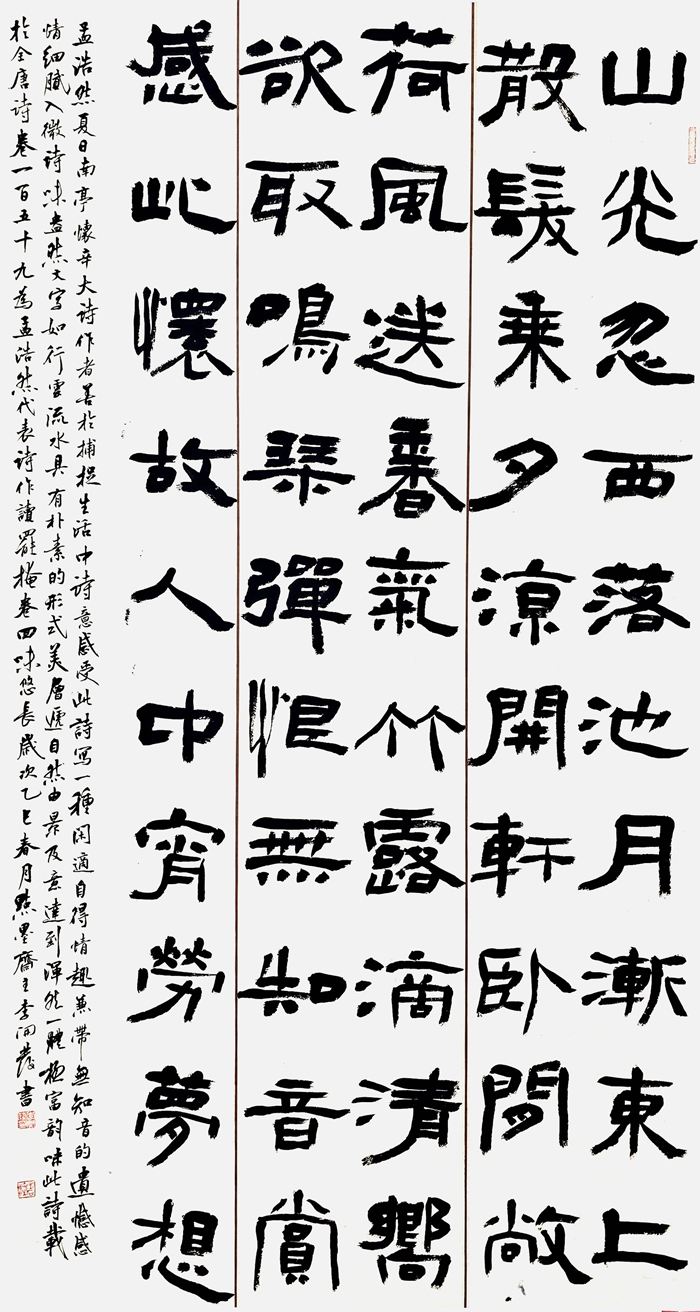 山光忽西落池月漸東上
散髮乘夕涼開軒卧閑敞
荷風送香氣竹露滴清嚮
欲取鳴琴彈恨無知音賞
感此懷故人中宵勞夢想
孟浩然夏日南亭懷辛大詩作者善於捕捉生活中詩意感受此詩寫一種閑適自得情趣兼帶無知音的遺憾感
情細膩入微詩味盎然文字如行雲流水具有朴素的形式美層遞自然由景及意達到渾然一體極富韵味此詩載
於全唐詩卷一百五十九為孟浩然代表詩作讀罷掩卷回味悠長歲次乙巳春月點墨齋主李開發書